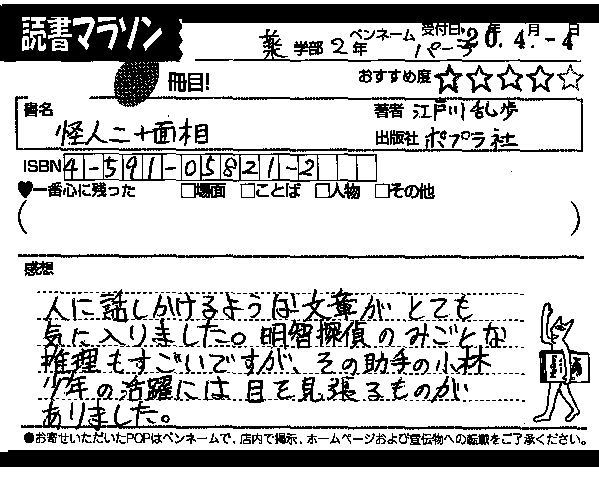 読書マラソン
薬 学部 2年 ペンネーム パーラ 受付日 20年 4.月 -4日
冊目! おすすめ度 ☆☆☆☆☆
書名 怪人二十面相
著者 江戸川乱歩
出版社 ポプラ社
ISBN 4-591-05821-2
♥一番心に残った □場面 □ことば □人物 □その他
( )
感想
人に話しかけるような文章がとても
気に入りました。明智探偵のみごとな
推理もすごいですが、その助手の小林
少年の活躍には目を見張るものが
ありました。
●お寄せいただいたPOPはペンネームで、店内で掲示、ホームページおよび宣伝物への転載をご了承ください。